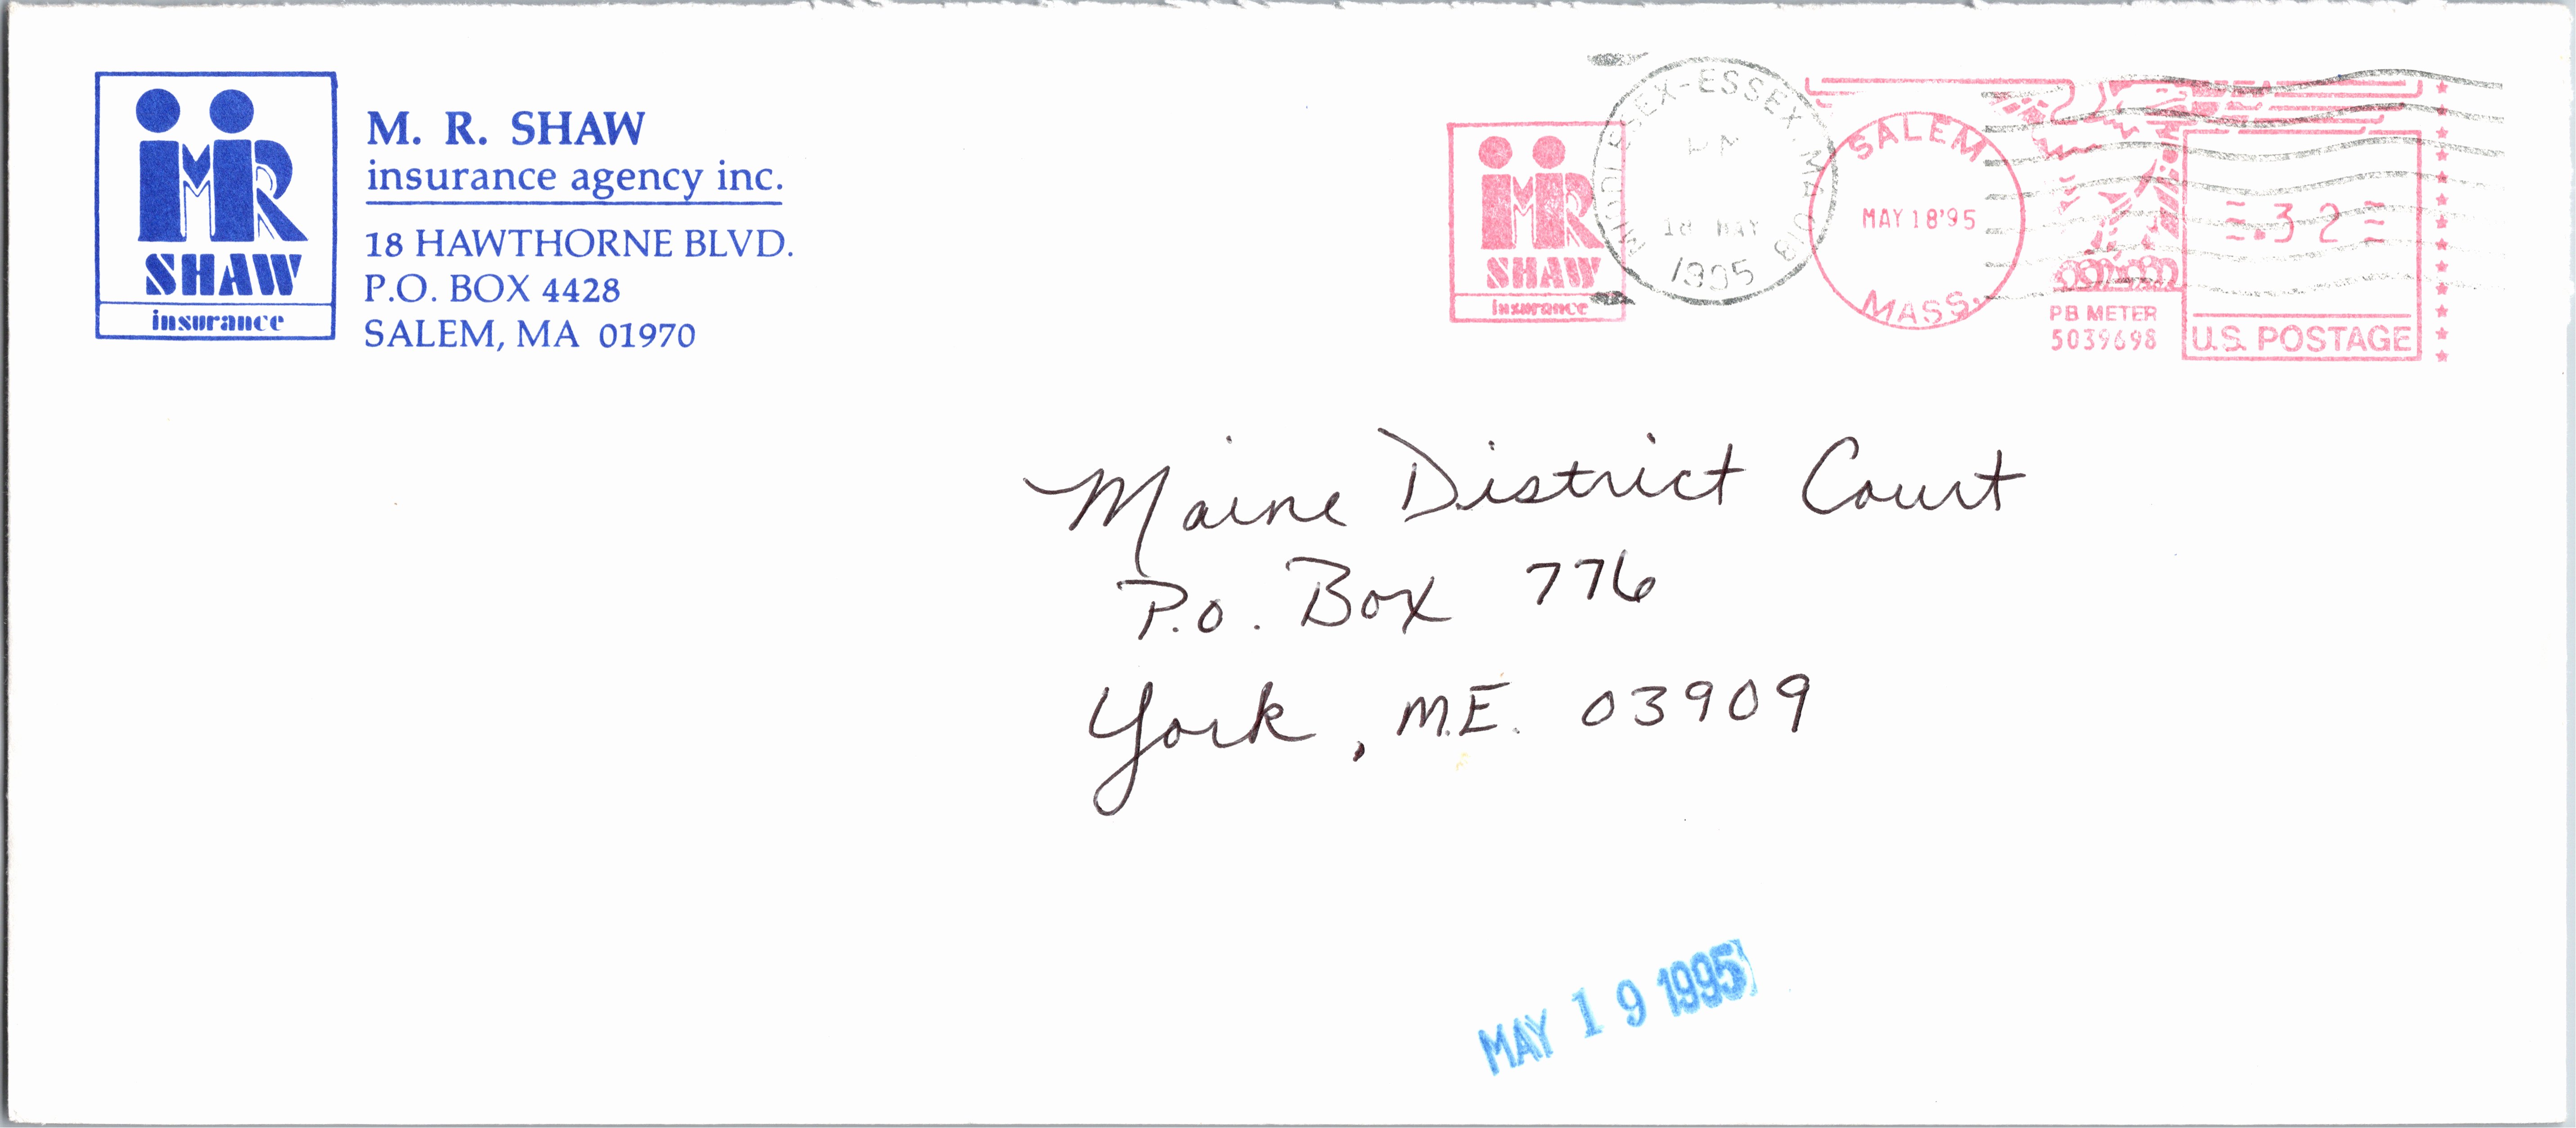 MR
SHAW
insurance
M. R. SHAW
insurance agency inc.
18 HAWTHORNE BLVD.
P.O. BOX 4428
SALEM, MA 01970
MR
SHAW
insurance
MIDDLESEX-ESSEX MA 018
PM
18 MAY
1995
SALEM
MAY 18'95
MASS.
PB METER
5039698
.32
U.S. POSTAGE
Maine District Court
P.O. Box 776
York, M.E. 03909
MAY 19 1995